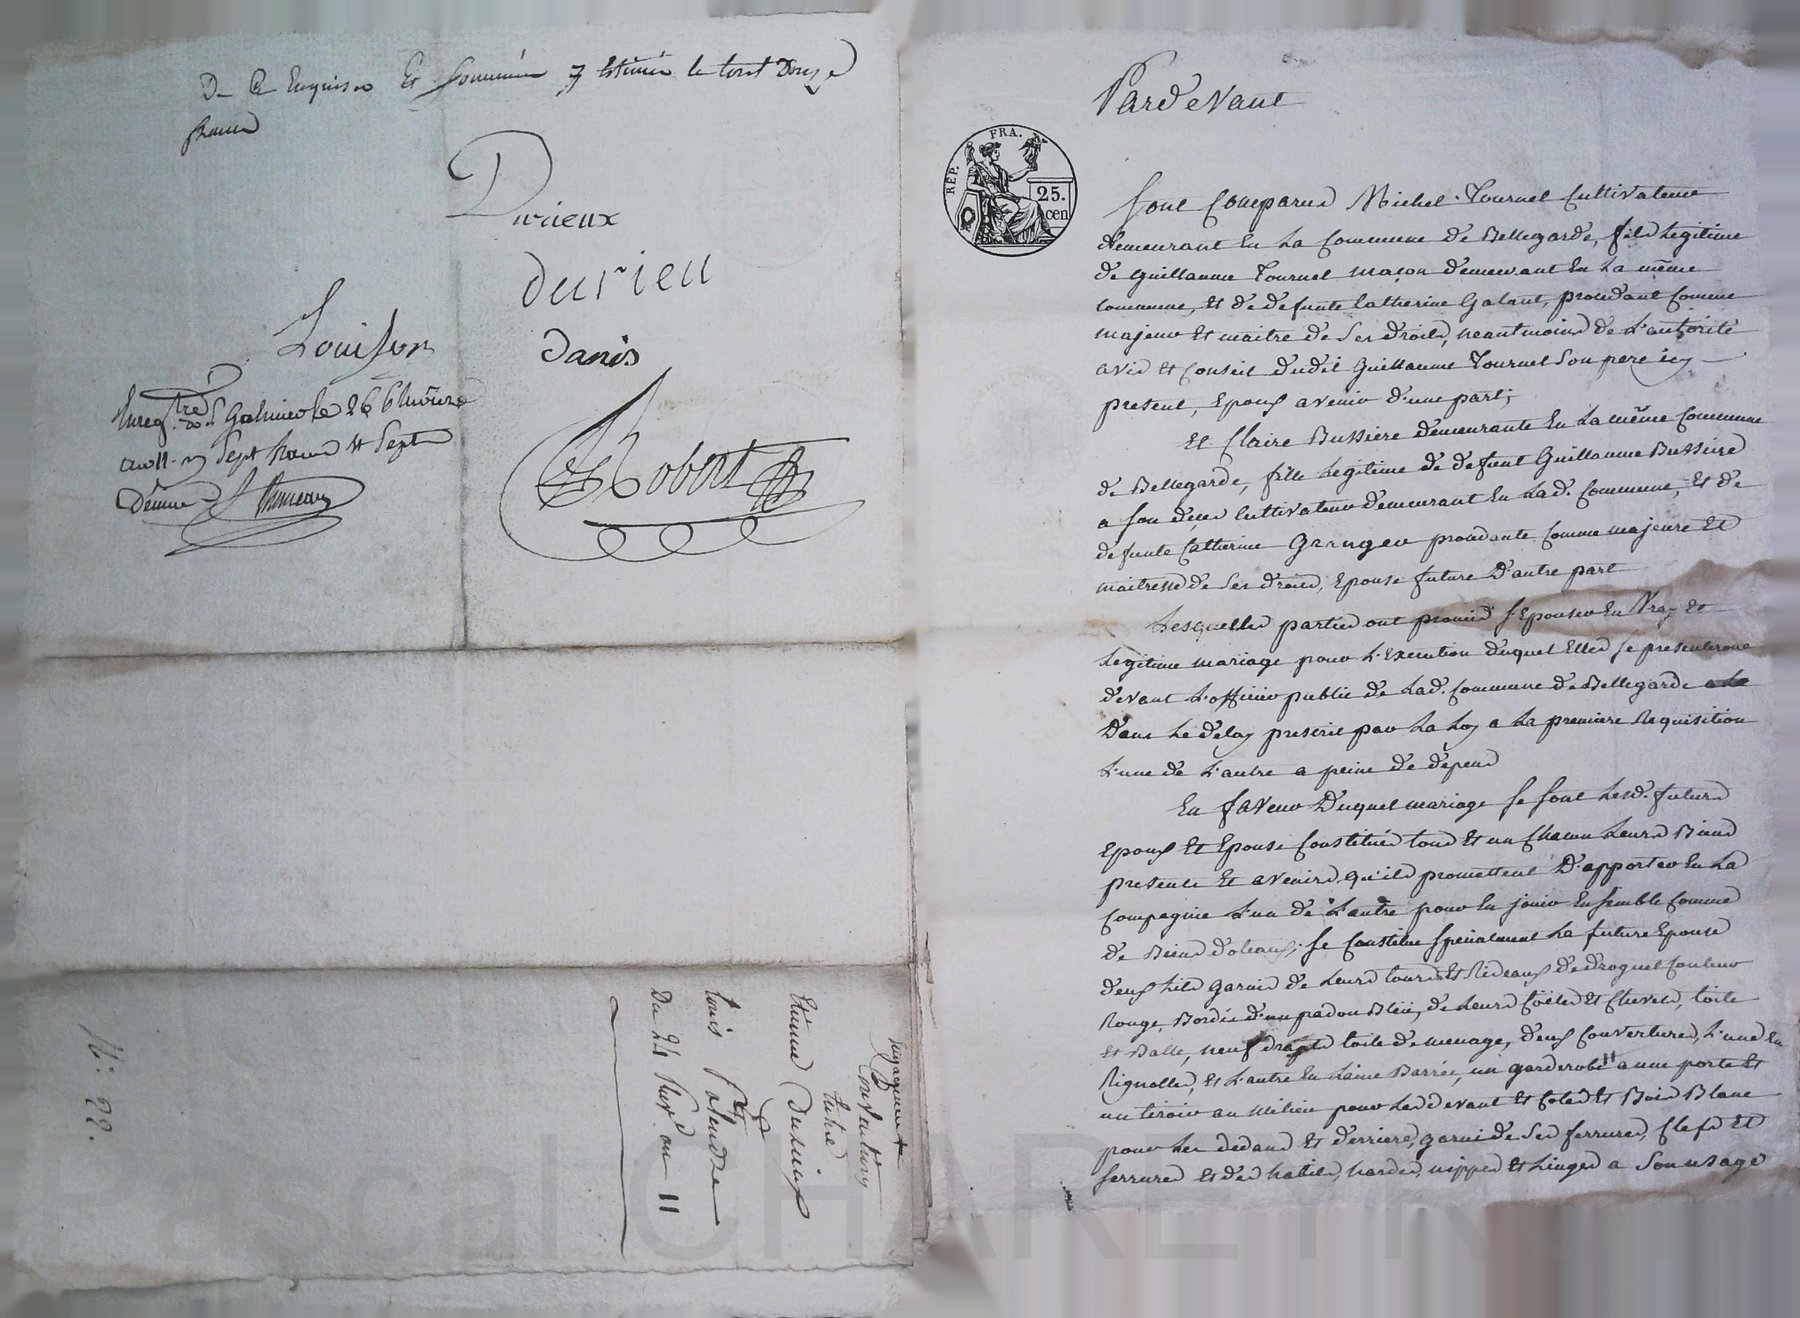 De ce Enquiser Et sommés y Estimée le tout Douze
francs
Durieux
durieu
Louison
danis
Robert
Enreg.tré à St Galmier le 26
an 11. Sept francs Et Sept
Décime
N: 22.
Du 24 an 11
Louis
Etienne Durieux
Entre
Par devant
REP. FRA.
25.
cen
sont Comparus Michel Tournel Cultivateur
demeurant En La Commune de Bellegarde, fils Legitime
de Guillaume Tournel maçon demeurant En La même
Commune, Et de defunte Catherine Galant, procédant Comme
majeur Et maitre de Ses droits, neantmoins de L'autorité
avis Et Conseil dudit Guillaume Tournel Son pere icy
present, Epoux avenir d'une part;
Et Claire Bussiere demeurante En La même Commune
de Bellegarde, fille Legitime de defunt Guillaume Bussiere
a son décés Cultivateur demeurant En Lad. Commune, Et de
defunte Catherine Granger procédante Comme majeure Et
maitresse de Ses droits, Epouse future D'autre part
Lesquelles parties ont promis s'Epouser En Vray Et
Legitime mariage pour L'Execution duquel Elles se presenteront
devant L'officier public de Lad. Commune de Bellegarde
Dans Le délay prescrit par La Loy a La premiere Requisition
L'une de L'autre a peine de dépens
En faveur Duquel mariage se sont Lesd. futurs
Epoux Et Epouse Constitués tous Et un Chacun Leurs Biens
presents Et avenirs qu'ils promettent D'apporter En La
Compagnie L'un de L'autre pour En jouir Ensemble Comme
de Biens dotaux; se Constitue spécialement La future Epouse
deux Lits garnis de Leurs tours Et Rideaux de droguet Couleur
Rouge, Bordés d'un padou Bleü, de Leurs Coëtes Et Chevets, toile
Et Balle, neuf draps toile de menage, deux Couvertures, L'une En
Rignolles, Et L'autre En Laine Barrée, un garderobe a une porte Et
un tiroir au milieu pour Les devant Et Cotés Et Bois Blanc
pour Les dedans Et derriere, garni de Ses ferrures, Clefs Et
serrures Et des habits, hardes, nippes Et Linges a Son usage